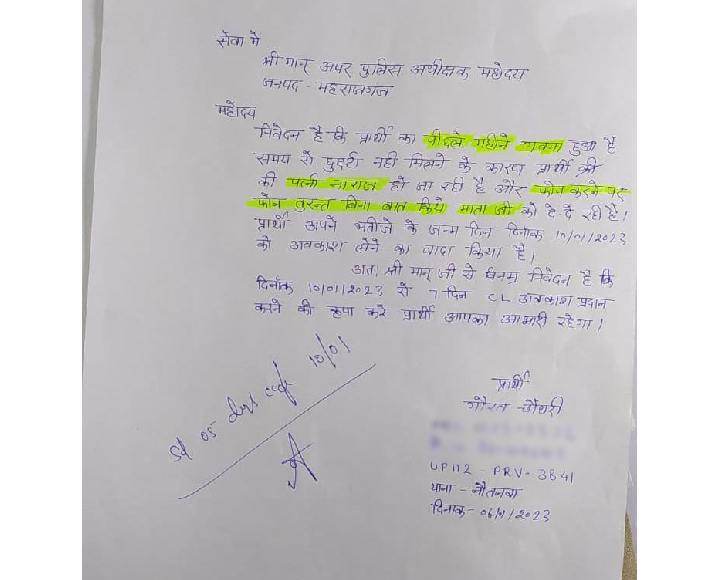 सेवा में
श्रीमान् अपर पुलिस अधीक्षक महोदय
जनपद - महराजगंज
महोदय
निवेदन है कि प्रार्थी का पीछले महीने हुआ है
समय से छुट्टी नही मिलने के कारण प्रार्थी की
की पत्नी नाराज हो जा रही है और फोन करने पर
फोन तुरन्त बिना बात किये माता जी को दे दे रही है।
प्रार्थी अपने भतीजे के जन्म दिन दिनांक 10/01/2023
को अवकाश लेने का वादा किया है।
अतः श्री मान् जी से निवेदन है कि
दिनांक 10/01/2023 से 7 दिन CL अवकाश प्रदान
करने की कृपा करे प्रार्थी आपका आभारी रहेगा।
प्रार्थी
गौरव चौधरी
05 days 10/01
UP112 - PRV - 3841
थाना - नौतनवा
दिनांक - 06/01/2023